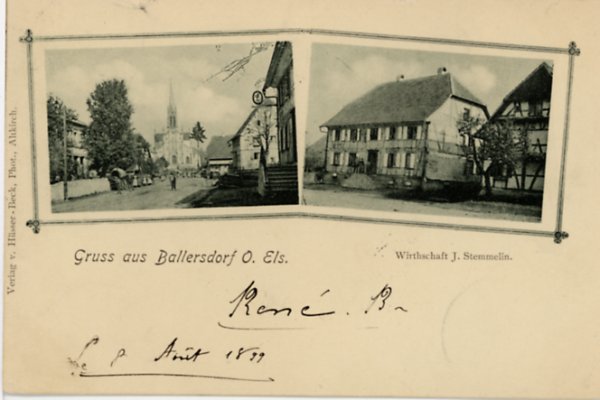 Verlag v. Hüsser-Beck, Phot., Altkirch.
Gruss aus Ballersdorf O. Els.
Wirthschaft J. Stemmelin.
René. B
8 Août 1899